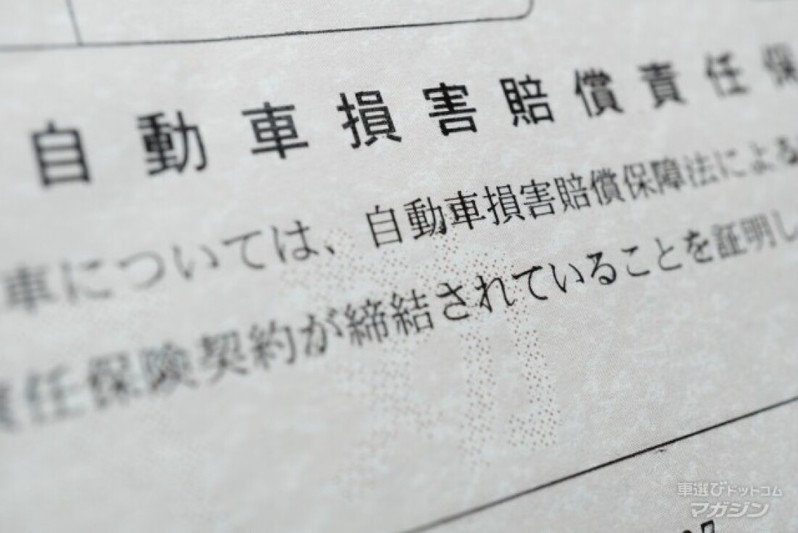 自動車損害賠償責任保
車については、自動車損害賠償保障法による
責任保険契約が締結されていることを証明し
車選びドットコム
マガジン